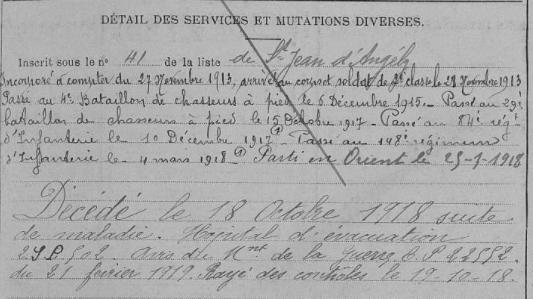 DÉTAIL DES SERVICES ET MUTATIONS DIVERSES.
Inscrit sous le n° 41 de la liste de St Jean d'Angély
Incorporé à compter du 27 Novembre 1913, arrivé au corps et soldat de 2e classe le 28 Novembre 1913
Passé au 4e Bataillon de chasseurs à pied le 6 Décembre 1915. Passé au 29e
bataillon de chasseurs à pied le 15 Octobre 1917 - Passé au 84e régt
d'Infanterie le 10 Décembre 1917 - Passé au 148e régiment
d'Infanterie le 4 mars 1918 Parti en Orient le 25-7-1918
Décédé le 18 Octobre 1918 suite
de maladie. Hôpital d'évacuation
2 S.P. 502. Avis du Mint de la Guerre A.S. 22552
du 21 février 1919. Rayé des contrôles le 19-10-18.